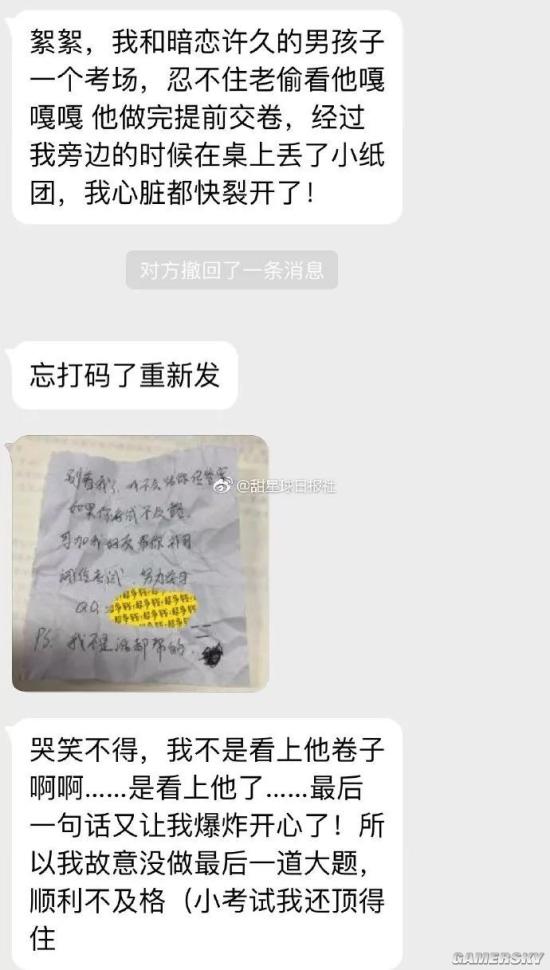 絮絮，我和暗恋许久的男孩子
一个考场，忍不住老偷看他嘎
嘎嘎嘎 他做完提前交卷，经过
我旁边的时候在桌上丢了小纸
团，我心脏都快裂开了！
对方撤回了一条消息
忘打码了重新发
别看我了，我不会给你传答案
@甜星球日报社
如果你考试不及格
可加我好友帮你补习
诚信考试，努力学习
QQ：
超多钱
PS. 我不是谁都帮的
哭笑不得，我不是看上他卷子
啊啊……是看上他了……最后
一句话又让我爆炸开心了！所
以我故意没做最后一道大题，
顺利不及格（小考试我还顶得
住
GAMERSKY